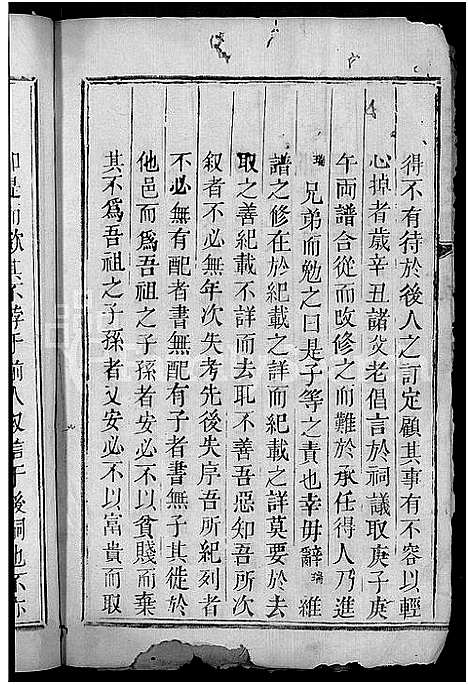 得不有待於後人之訂定顧其事有不容以輕
心掉者歲辛丑諸父老倡言於祠議取庚子庚
午兩譜合從而改修之而難於承任得人乃進
瑞兄弟而勉之曰是子等之責也幸毋辭瑞維
譜之修在於紀載之詳而紀載之詳莫要於去
取之善紀載不詳而去取不善吾惡知吾所次
叙者不必無年次失考先後失序吾所紀列者
不必無有配者書無配有子者書無子其徙於
他邑而爲吾祖之子孫者安必不以貧賤而棄
其不爲吾祖之子孫者又安必不以富貴而取